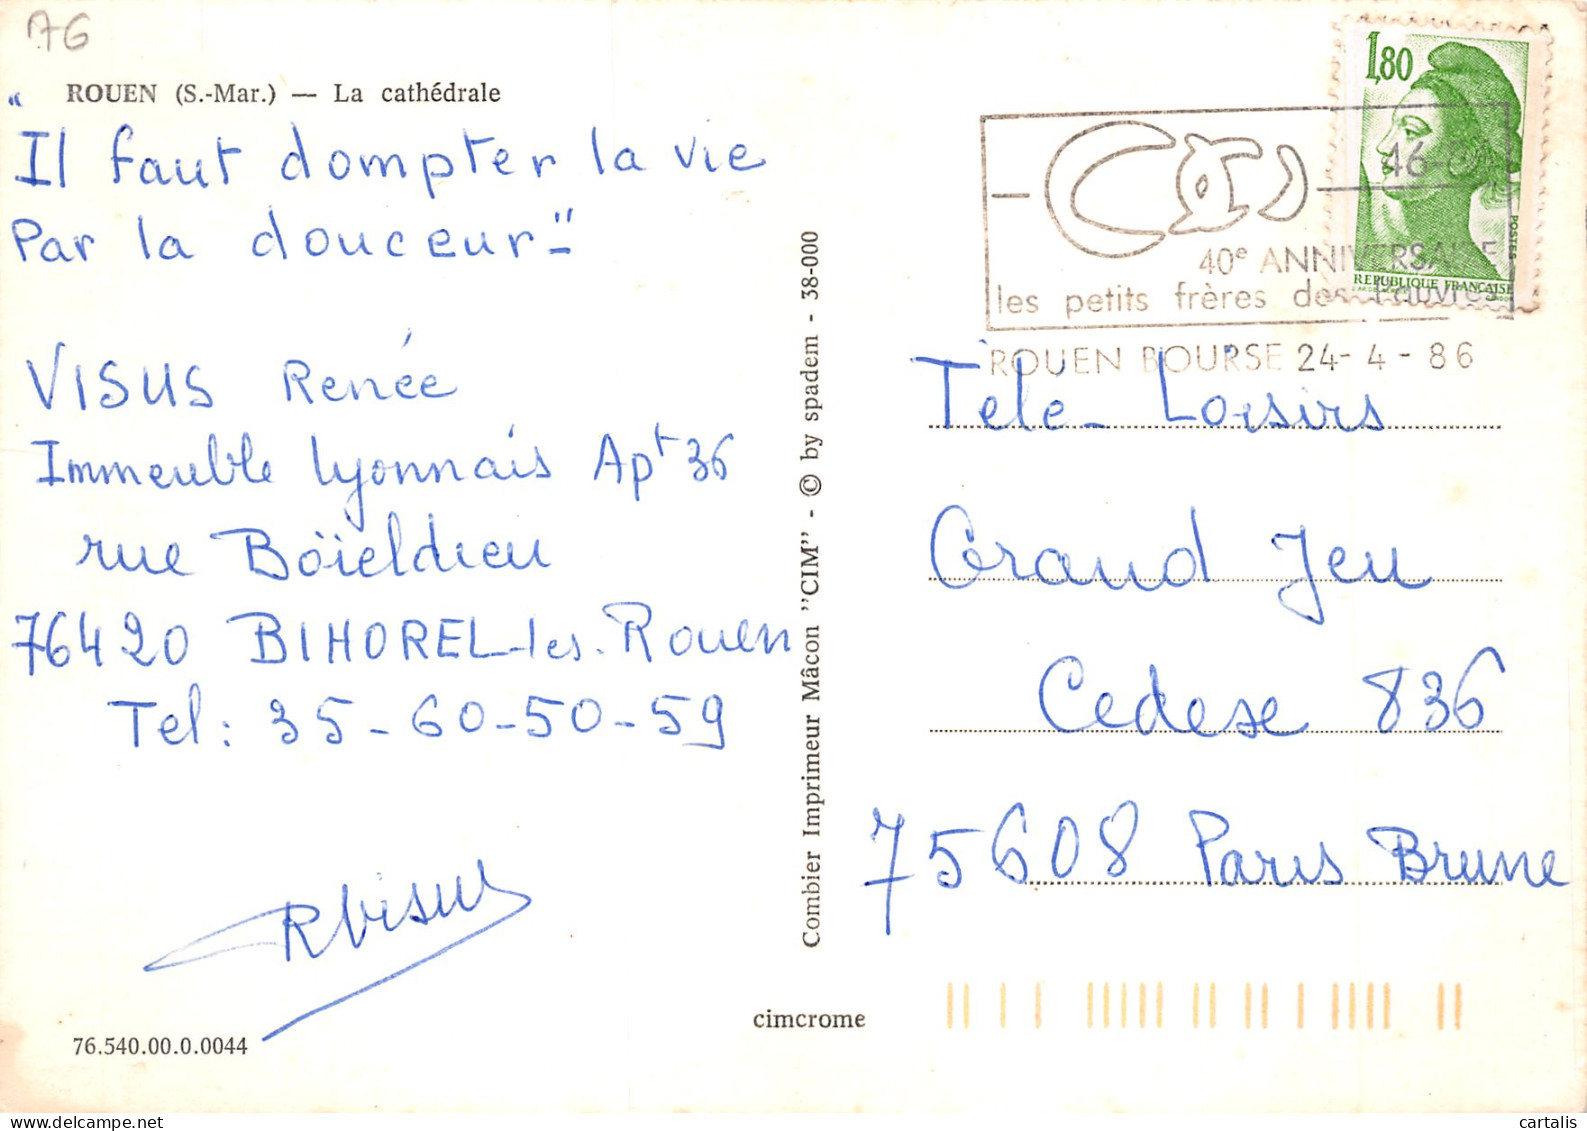 76
ROUEN (S.-Mar.) — La cathédrale
" Il faut dompter la vie
Par la douceur -"
VISUS Renée
Immeuble Lyonnais Apt 36
rue Boïeldieu
76420 BIHOREL-les-Rouen
Tel: 35-60-50-59
RVisus
76.540.00.0.0044
Combier Imprimeur Mâcon "CIM" - © by spadem - 38-000
cimcrome
1,80
POSTES
REPUBLIQUE FRANÇAISE
46-
40e ANNIVERSAIRE
les petits frères des Pauvres
ROUEN BOURSE 24-4-86
Télé-Loisirs
Grand Jeu
Cedese 836
75608 Paris Brune
cartalis